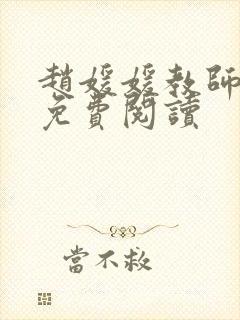 趙媛媛教師
免費閱讀
當不救